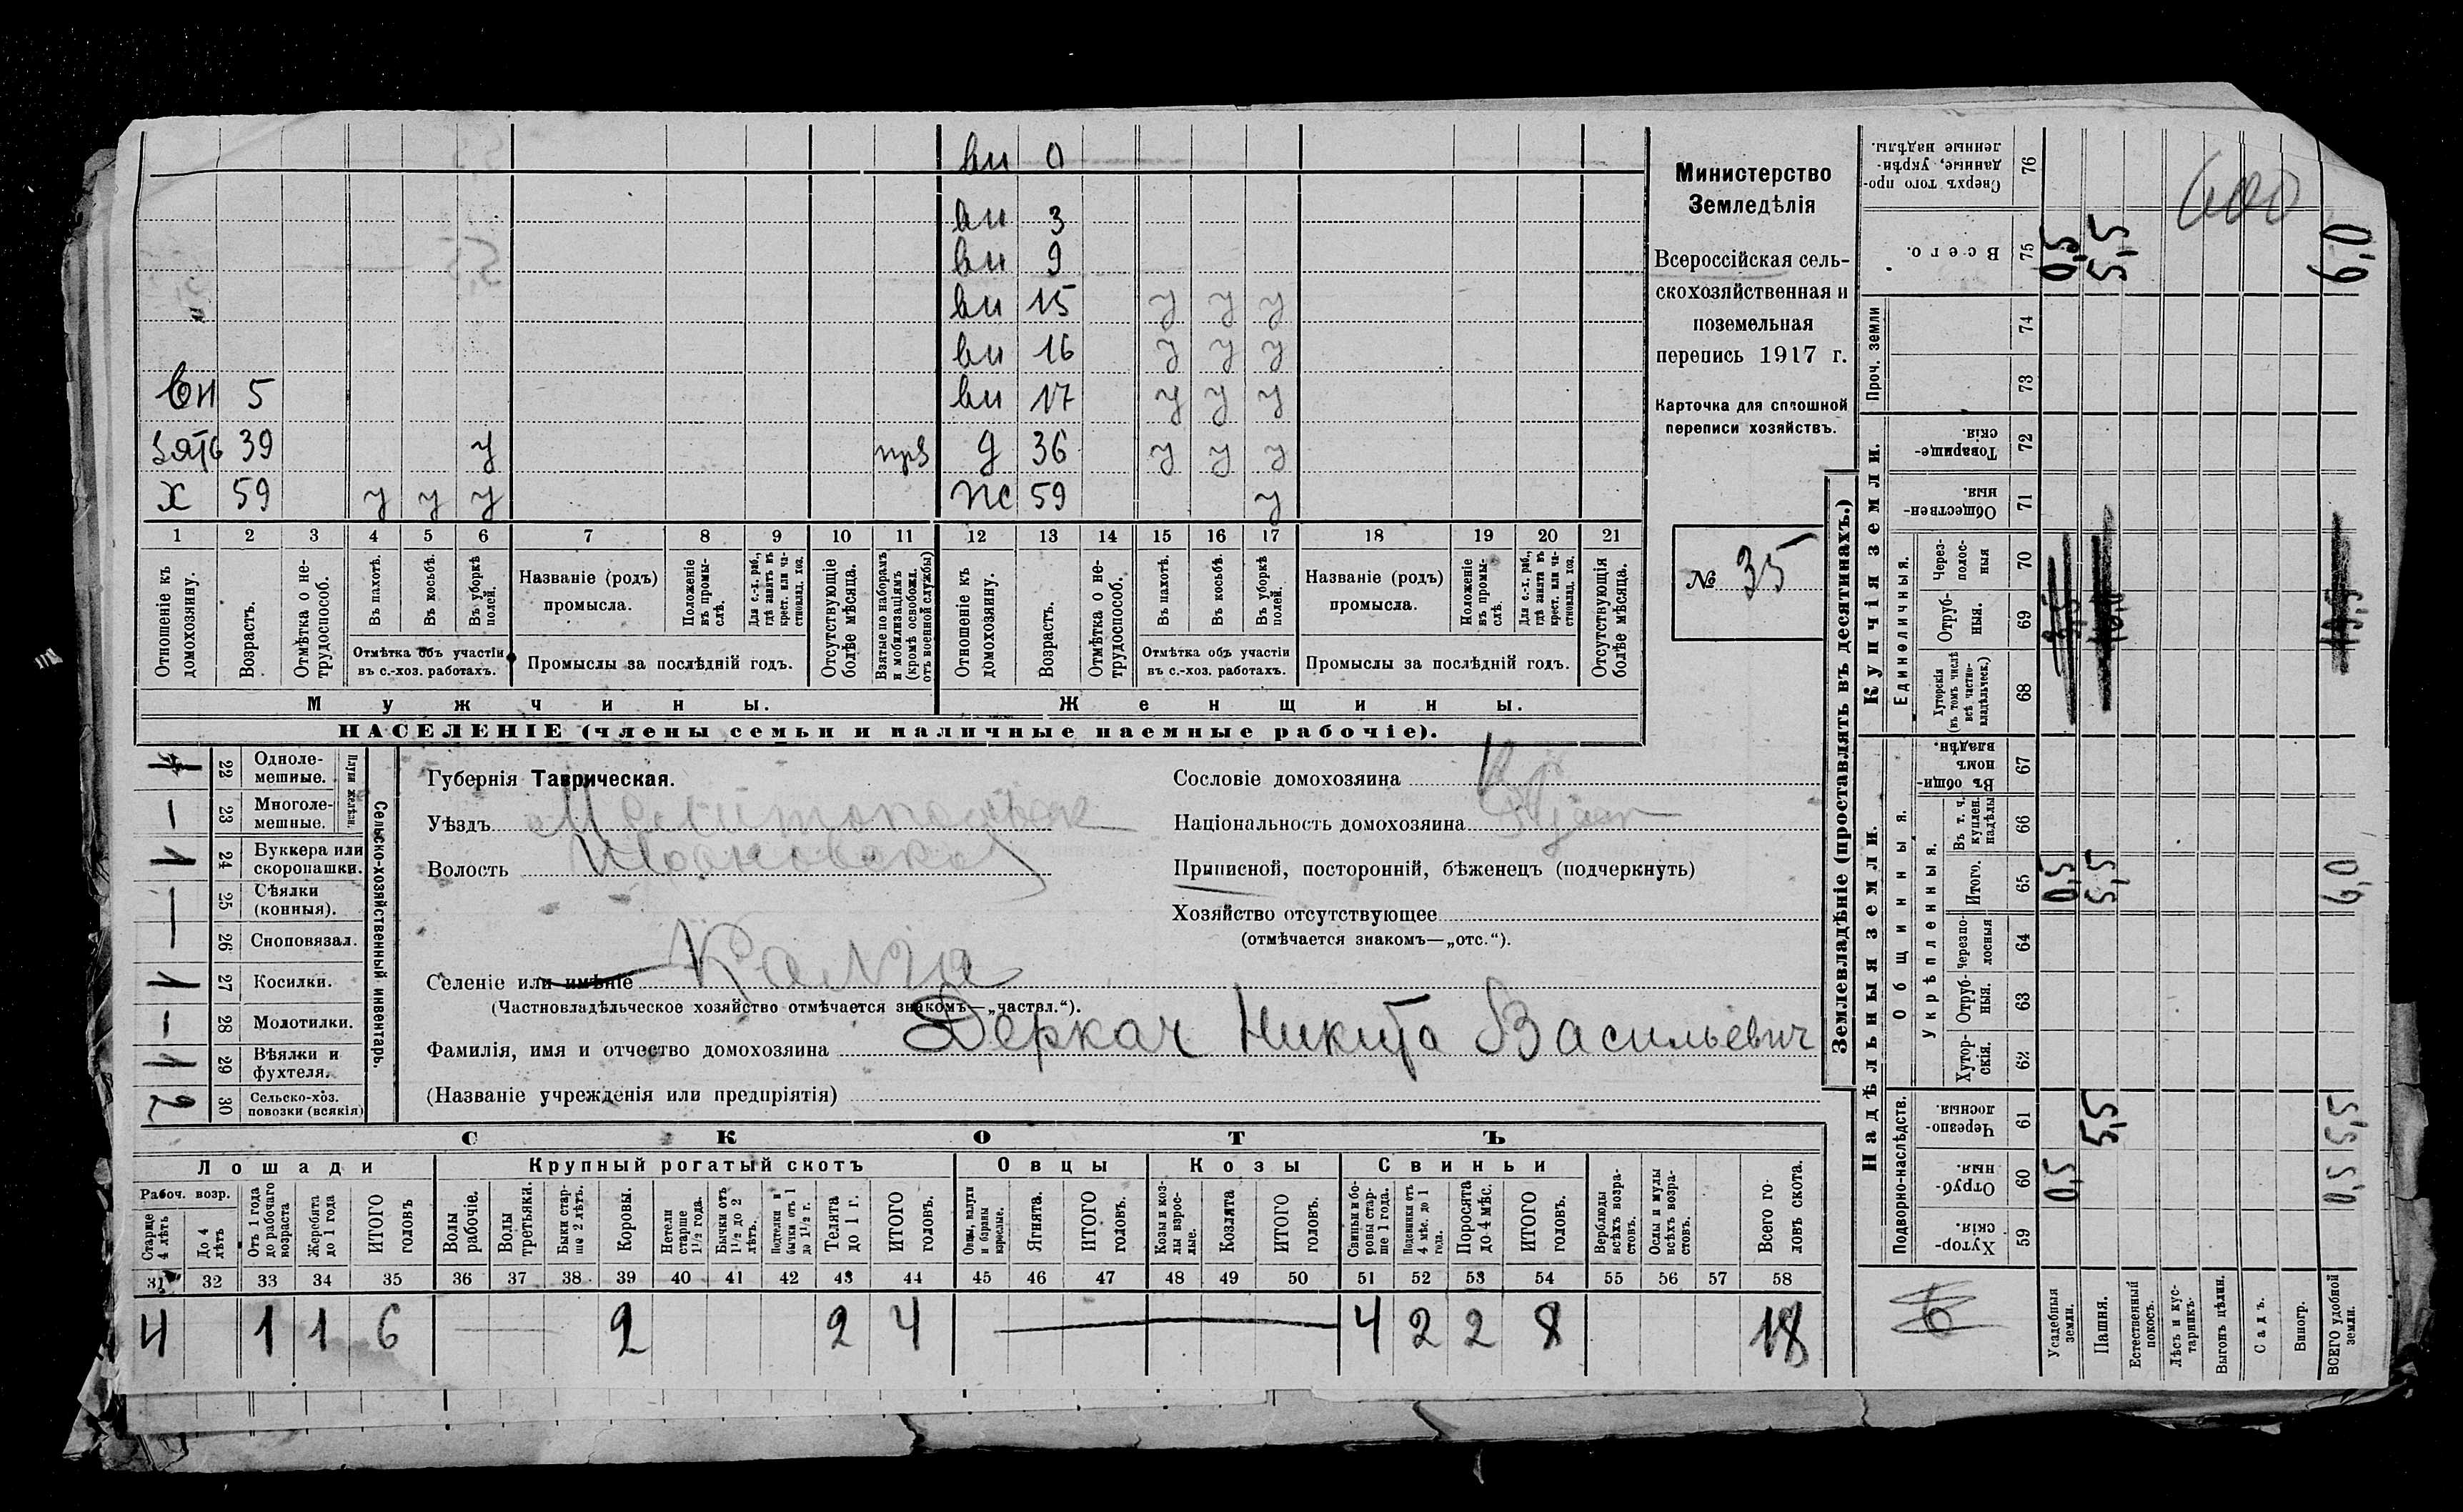 ви 0
ви 3
ви 9
ви 15 у у у
ви 16 у у у
вн 5 ви 17 у у у
зять 39 у прз д 36 у у у
х 59 у у у жс 59 у
1 2 3 4 5 6 7 8 9 10 11 12 13 14 15 16 17 18 19 20 21
Отношеніе къ домохозяину.
Возрастъ.
Отмѣтка о не-
трудоспособ.
Въ пахотѣ.
Въ косьбѣ.
Въ уборкѣ полей.
Отмѣтка объ участіи
въ с.-хоз. работахъ.
Названіе (родъ)
промысла.
Положеніе въ промы-
слѣ.
Для с.-х. раб., гдѣ занятъ въ крест. или ча-
стновлад. хоз.
Промыслы за послѣдній годъ.
Отсутствующіе болѣе мѣсяца.
Взятые по наборамъ и мобилизаціямъ (кромѣ освобожд. отъ военной службы)
Отношеніе къ домохозяину.
Возрастъ.
Отмѣтка о не-
трудоспособ.
Въ пахотѣ.
Въ косьбѣ.
Въ уборкѣ полей.
Отмѣтка объ участіи
въ с.-хоз. работахъ.
Названіе (родъ)
промысла.
Положеніе въ промы-
слѣ.
Для с.-х. раб., гдѣ занята въ крест. или ча-
стновлад. хоз.
Промыслы за послѣдній годъ.
Отсутствующія болѣе мѣсяца.
Мужчины. Женщины.
НАСЕЛЕНІЕ (члены семьи и наличные наемные рабочіе).
Министерство
Земледѣлія
Всероссійская сель-
скохозяйственная и
поземельная
перепись 1917 г.
Карточка для сплошной
переписи хозяйствъ.
№ 35
Сельско-хозяйственный инвентарь.
Плуги желѣзн.
22 Одноле-
мешные.
— 23 Многоле-
мешные.
1 24 Буккера или
скоропашки.
— 25 Сѣялки
(конныя).
26 Сноповязал.
1 27 Косилки.
— 28 Молотилки.
1 29 Вѣялки и
фухтеля.
2 30 Сельско-хоз.
повозки (всякія)
Губернія Таврическая.
Уѣздъ Мелитопольск
Волость
Селеніе или имѣніе Калга
(Частновладѣльческое хозяйство отмѣчается знакомъ—„частвл.“).
Фамилія, имя и отчество домохозяина Деркач Никита Васильевич
(Названіе учрежденія или предпріятія)
Сословіе домохозяина
Національность домохозяина
Приписной, посторонній, бѣженецъ (подчеркнуть)
Хозяйство отсутствующее
(отмѣчается знакомъ—„отс.“).
СКОТЪ
Лошади Крупный рогатый скотъ Овцы Козы Свиньи
Рабоч. возр.
Старше 4 лѣтъ
До 4 лѣтъ
Отъ 1 года до рабочаго возраста
Жеребята до 1 года
ИТОГО головъ
Волы рабочіе.
Волы третьяки.
Быки стар-
ше 2 лѣтъ.
Коровы.
Нетели старше 1½ года.
Бычки отъ 1½ до 2 лѣтъ.
Подтелки и бычки отъ 1 до 1½ г.
Телята до 1 г.
ИТОГО головъ.
Овцы, валухи и бараны взрослые.
Ягнята.
ИТОГО головъ.
Козы и коз-
лы взрос-
лые.
Козлята
ИТОГО головъ.
Свиньи и бо-
ровы стар-
ше 1 года.
Подсвинки отъ 4 мѣс. до 1 года.
Поросята до 4 мѣс.
ИТОГО головъ.
Верблюды всѣхъ возра-
стовъ.
Ослы и мулы всѣхъ возра-
стовъ.
Всего го-
ловъ скота.
31 32 33 34 35 36 37 38 39 40 41 42 43 44 45 46 47 48 49 50 51 52 53 54 55 56 57 58
4 1 1 6 2 2 4 4 2 2 8 18
Землевладѣніе (проставлять въ десятинахъ.)
Надѣльныя земли. Купчія земли. Проч. земли
Подворно-наслѣдств.
Общинныя.
Укрѣпленныя.
Единоличныя.
Хутор-
скія. 59
Отруб-
ныя. 60
Черезпо-
лосныя. 61
Хутор-
скія. 62
Отруб-
ныя. 63
Черезпо-
лосныя 64
Итого. 65
Въ т. ч. куплен. надѣлы 66
Въ общи-
номъ владѣн. 67
Хуторскія (въ томъ числѣ всѣ частно-
владѣльческ.) 68
Отруб-
ныя. 69
Через-
полос-
ныя 70
Обществен-
ныя. 71
Товарище-
скія. 72
73
74
Всего. 75
Сверхъ того про-
данные, укрѣп-
ленные надѣлы. 76
Усадебныя земли. 0,5 0,5 0,5
Пашня. 5,5 5,5 5,5
Естественный покосъ.
Лѣсъ и кус-
тарникъ.
Выгонъ цѣлин.
Садъ.
Виногр.
ВСЕГО удобной земли. 0,5 5,5 6,0 6,0
600